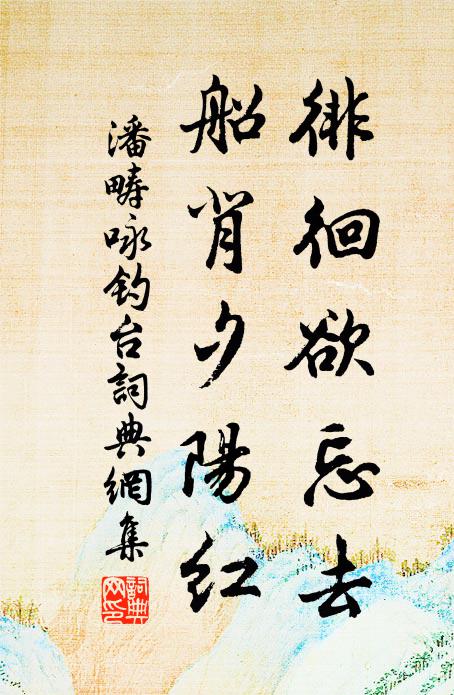 徘徊欲忘去
船背夕陽紅
潘疇咏釣台詞典網集
詞典